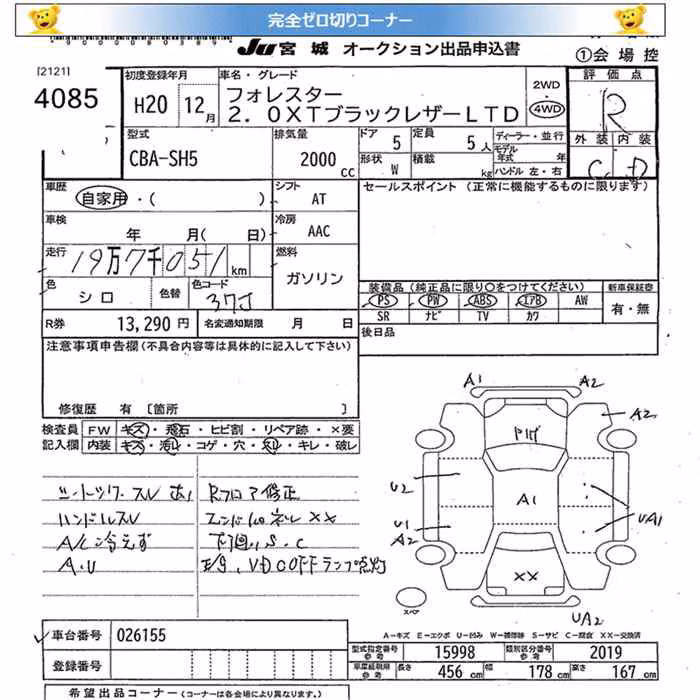 完全ゼロ切りコーナー
JU宮城 オークション出品申込書
①会場控
[2121]
4085
初度登録年月
H20 12月
車名・グレード
フォレスター
2.0XTブラックレザーLTD
2WD
・
4WD
評価点
R
外装 内装
C D
型式
CBA-SH5
排気量
2000 CC
ドア 5
定員 5人
形状 W
積載 kg
ディーラー・並行
モデル年式 年
ハンドル 左・右
車歴
自家用・( )
シフト AT
セールスポイント (正常に機能するものに限ります)
車検
年 月( 日)
冷房 AAC
走行
19万7千051km
燃料
ガソリン
色
シロ
色替
色コード
37J
装備品(純正品に限り○をつけてください)
新車保証書
PS PW ABS エアB AW
有・無
SR ナビ TV カワ
R券 13,290円
名変通知期限 月 日
後日品
注意事項申告欄(不具合内容等は具体的に記入して下さい)
修復歴 有 [箇所 ]
検査員 FW キズ・飛石・ヒビ割・リペア跡・×要
記入欄 内装 キズ・汚レ・コゲ・穴・スレ・キレ・破レ
シートツワースル
ハンドルスル
A/C冷えず
A.U
Rフロア修正
エンドパネル XX
下廻り S.C
E/g、VDC OFFランプ点灯
A1 A2
A2
U2
A1
U1
A2
UA1
XX
スペア
UA2
A-キズ E-エクボ U-凹み W-補修跡 S-サビ C-腐食 XX-交換済
車台番号 026155
型式指定番号 参考 15998
類別区分番号 参考 2019
登録番号
参考 長さ 456cm 幅 178cm 高さ 167cm
希望出品コーナー(コーナーは各会場により異なります。)